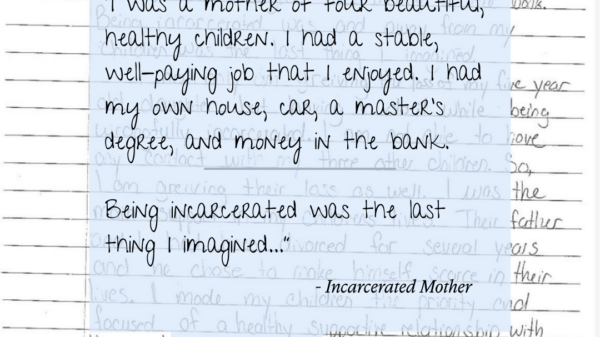 I was a mother of four beautiful,
healthy children. I had a stable,
well-paying job that I enjoyed. I had
my own house, car, a master's
degree, and money in the bank.
Being incarcerated was the last
thing I imagined..."
- Incarcerated Mother
walk.
Being incarcerated was and away from my
children was the last thing I imagined
loss of my five year
while being
able to have
any contact with my three other children. So,
I am greiving their loss as well. I was the
Their father
divorced for several years
and he chose to make himself scarce in their
lives. I made my children the priority and
focused of a healthy supportive relationship with